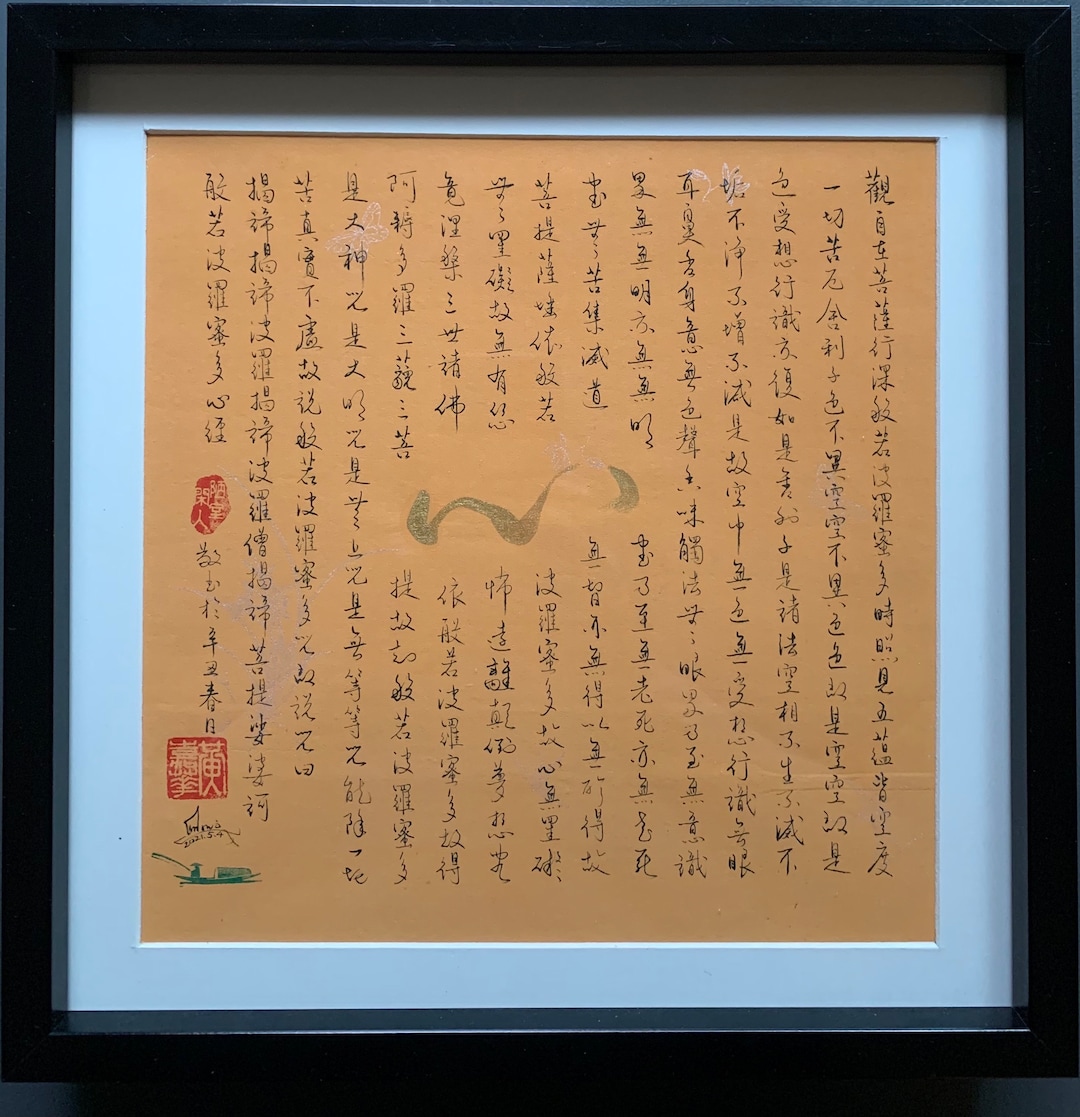 觀自在菩薩行深般若波羅蜜多時照見五蘊皆空度
一切苦厄舍利子色不異空空不異色色即是空空即是
色受想行識亦復如是舍利子是諸法空相不生不滅不
垢不淨不增不減是故空中無色無受想行識無眼
耳鼻舌身意無色聲香味觸法無眼界乃至無意識
界無無明亦無無明盡乃至無老死亦無老死
盡無苦集滅道無智亦無得以無所得故
菩提薩埵依般若波羅蜜多故心無罣礙
無罣礙故無有恐怖遠離顛倒夢想究
竟涅槃三世諸佛依般若波羅蜜多故得
阿耨多羅三藐三菩提故知般若波羅蜜多
是大神咒是大明咒是無上咒是無等等咒能除一切
苦真實不虛故說般若波羅蜜多咒即說咒曰
揭諦揭諦波羅揭諦波羅僧揭諦菩提娑婆訶
般若波羅蜜多心經
陋室閑人
敬書於辛丑春日
心